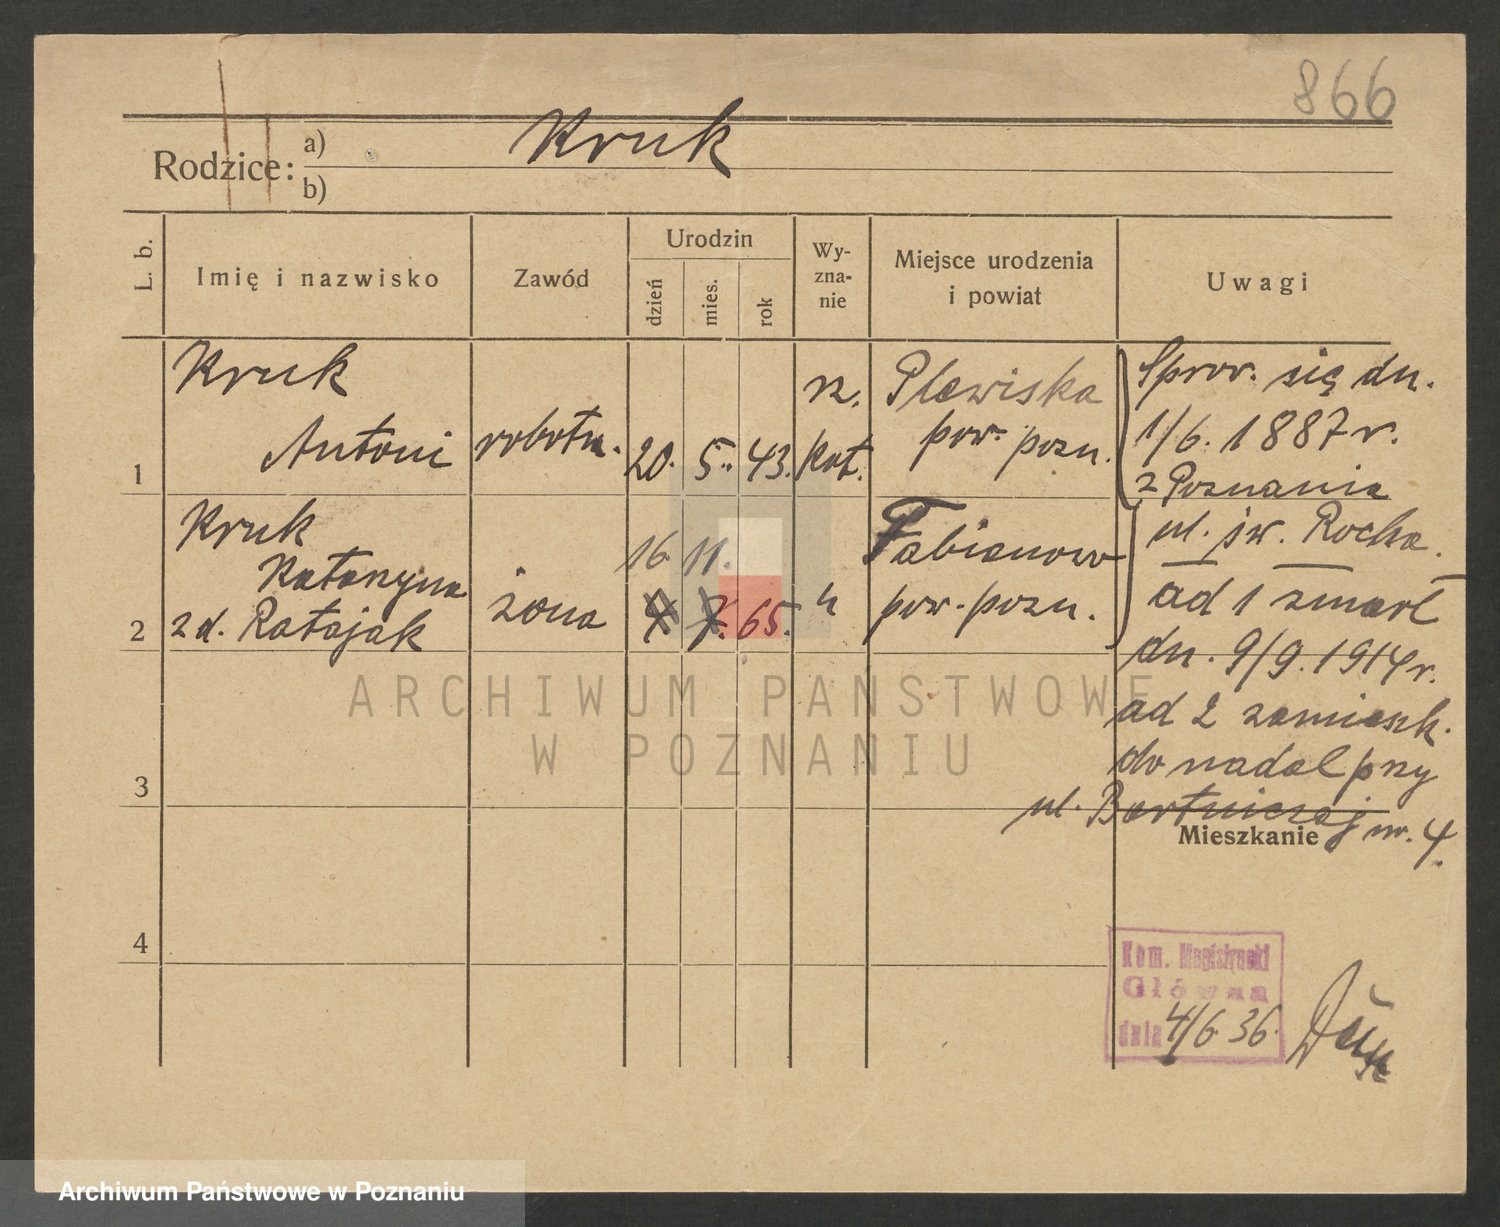 866
Rodzice: a) Kruk
b)
L. b. Imię i nazwisko Zawód Urodzin dzień mies. rok Wy-zna-nie Miejsce urodzenia i powiat Uwagi
1 Kruk Antoni robotn. 20. 5. 43. rz. kat. Plewiska pow. pozn.
2 Kruk Katarzyna z d. Ratajak żona 16 11. 4 7. 65. " Fabianowo pow. pozn.
Sprow. się dn.
1/6. 1887 r.
z Poznania
ul. św. Rocha.
ad 1 zmarł
dn. 9/9. 1914 r.
ad 2 zamieszk.
do nadal przy
ul. Bartniczej nr. 4
3
Mieszkanie
4
Kom. Magistracki
Główna
dnia 4/6 36.
ARCHIWUM PANSTWOWE
W POZNANIU
Archiwum Państwowe w Poznaniu